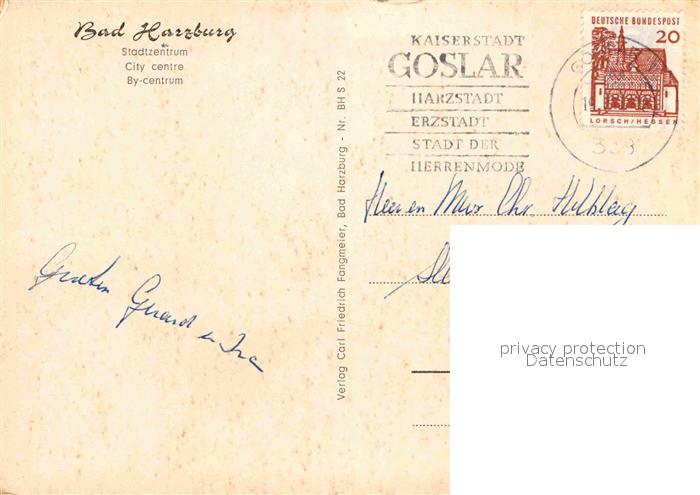 Bad Harzburg
Stadtzentrum
City centre
By-centrum
Verlag Carl Friedrich Fangmeier, Bad Harzburg - Nr. BH S 22
KAISERSTADT
GOSLAR
HARZSTADT
ERZSTADT
STADT DER
HERRENMODE
DEUTSCHE BUNDESPOST
20
LORSCH/HESSEN
338
Heer en Mevr Chr.
Groeten
privacy protection
Datenschutz